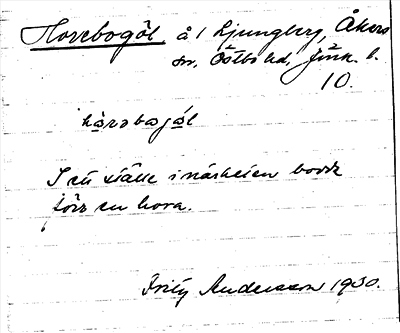 Horebogöl å / Ljungberg, Åkers
sn. Östbo hd, Jönk. l.
10.
hòrəbagö̀l
I ett ställe i närheten bodde
förr en hora.
Fritz Andersson 1930.